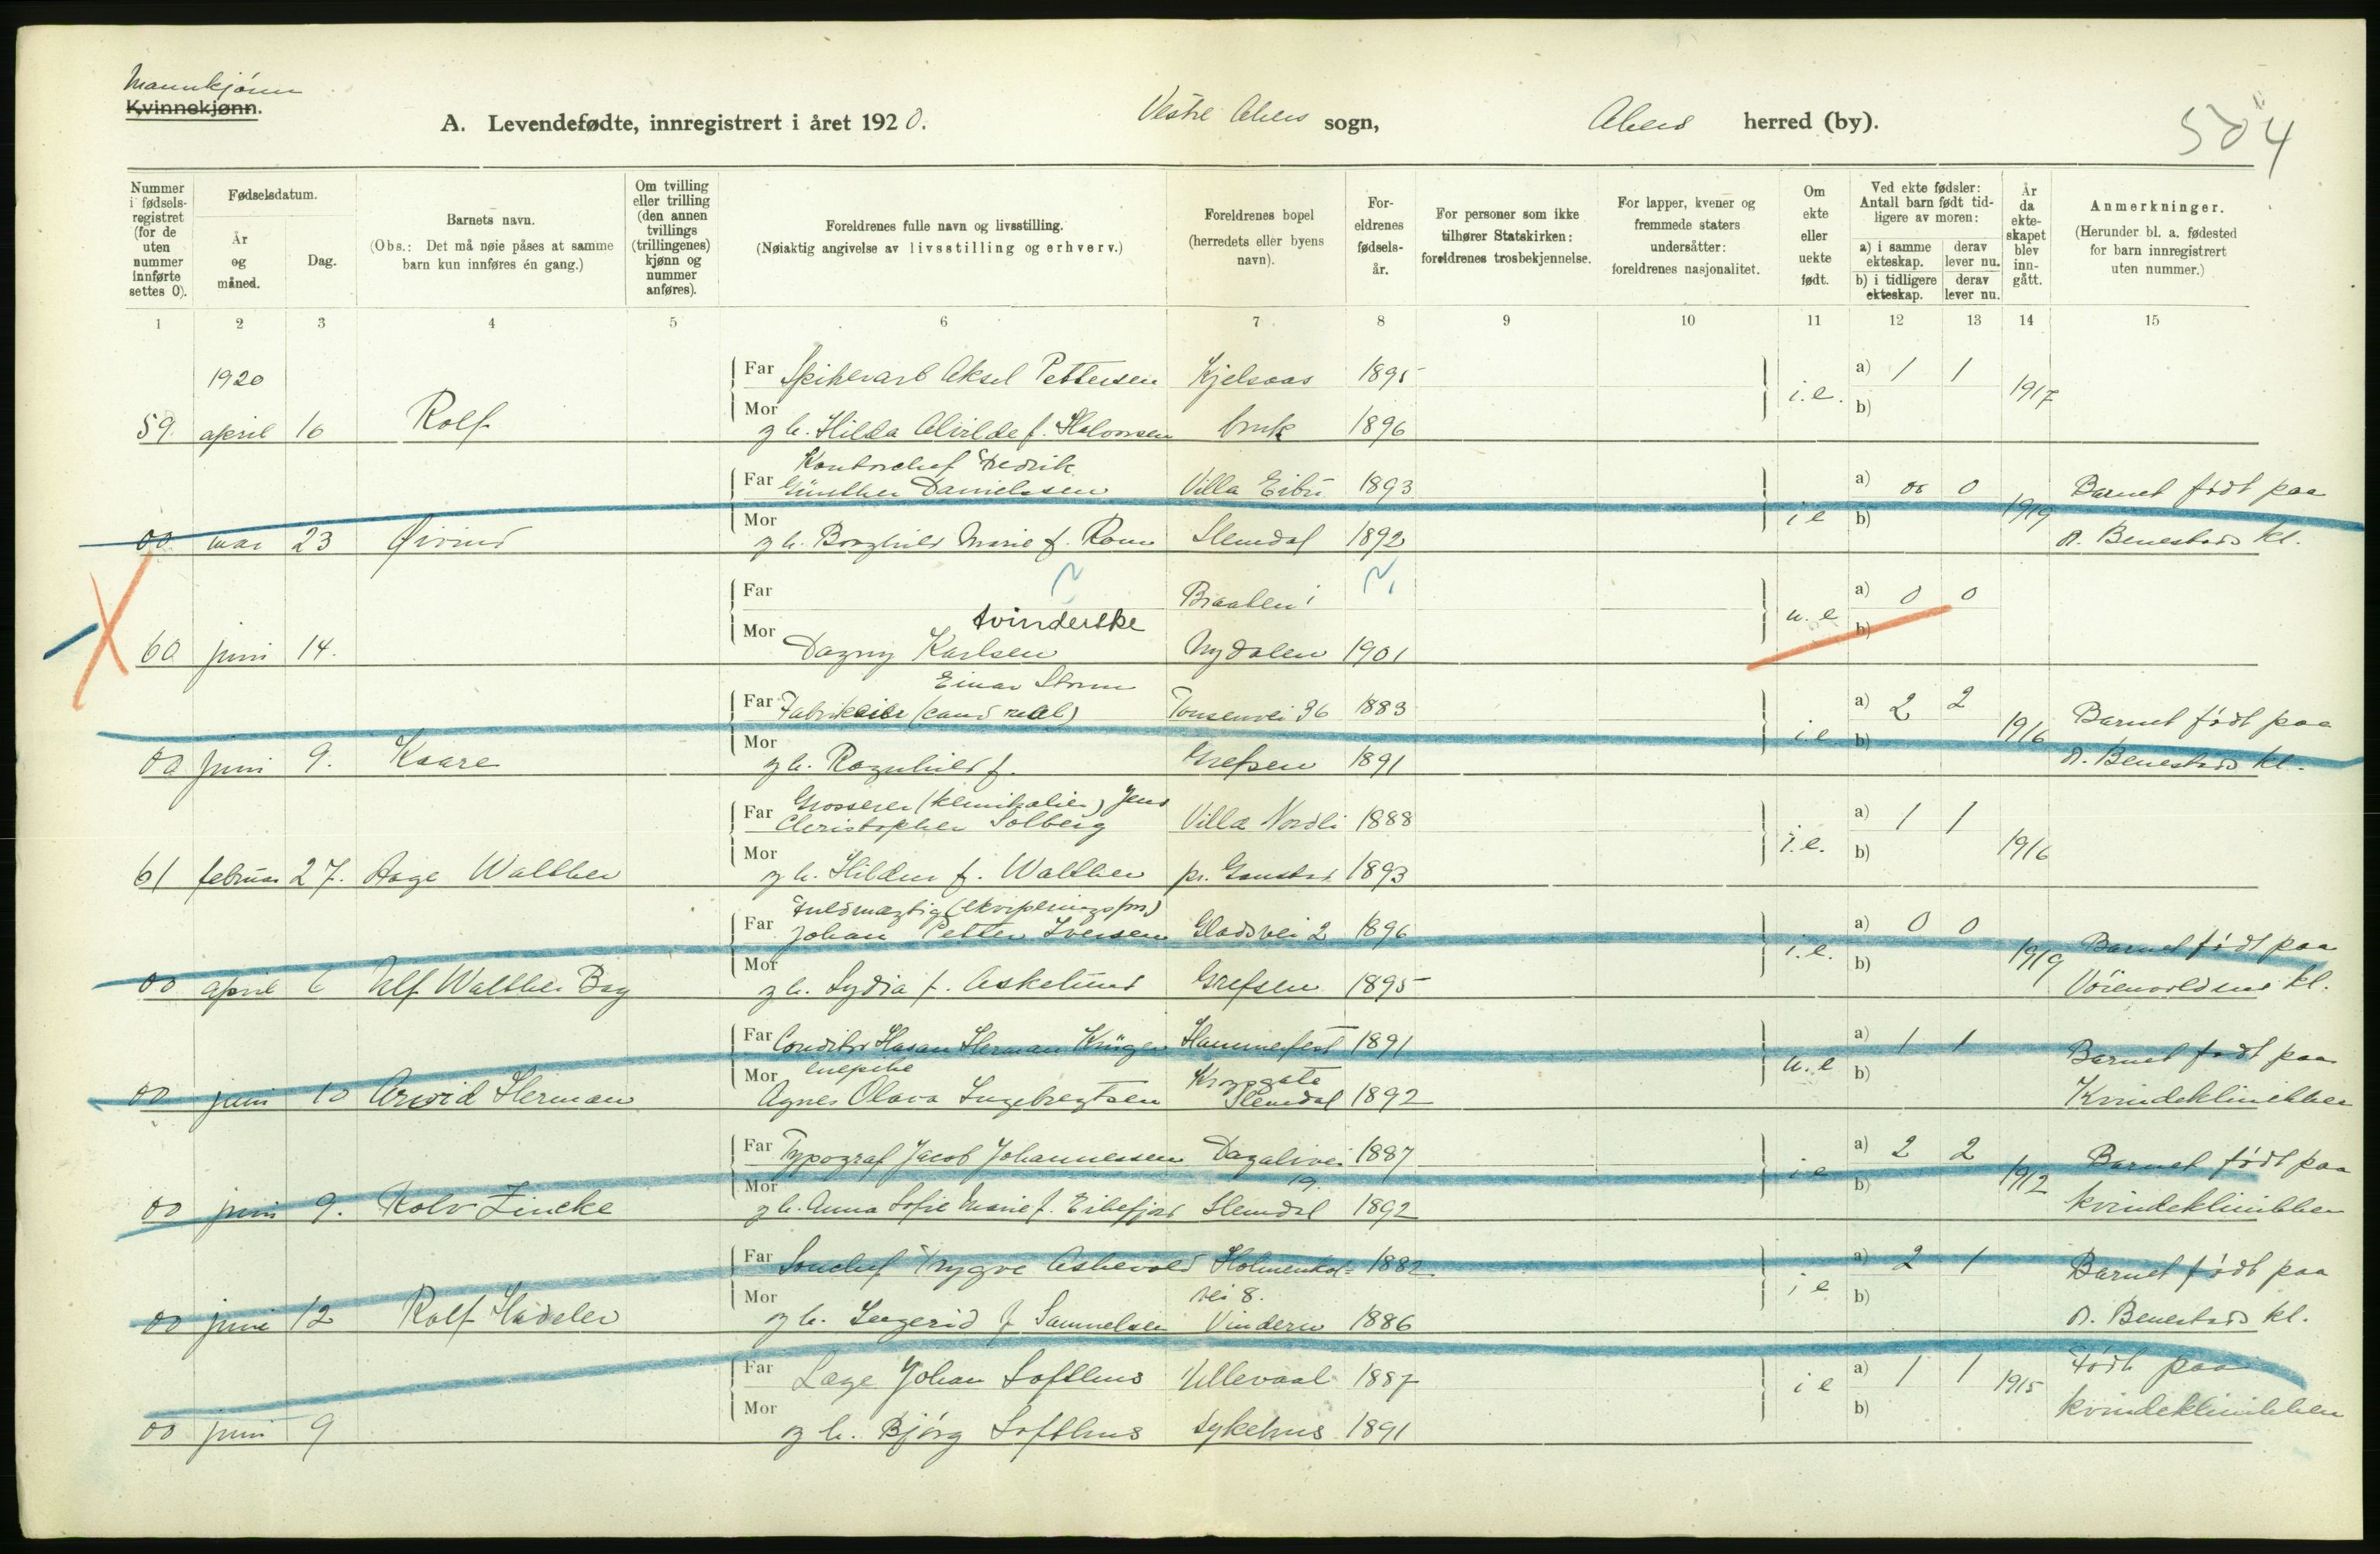 Mannkjönn
Kvinnekjønn.
A. Levendefødte, innregistrert i året 1920.
Vestre Akers sogn,
Akers herred (by).
504
Nummer i fødselsregistret (for de uten nummer innførte settes 0).
Fødselsdatum.
År og måned.
Dag.
Barnets navn.
(Obs.: Det må nøie påses at samme barn kun innføres én gang.)
Om tvilling eller trilling (den annen tvillings (trillingenes) kjønn og nummer anføres).
Foreldrenes fulle navn og livsstilling.
(Nøiaktig angivelse av livsstilling og erhverv.)
Foreldrenes bopel (herredets eller byens navn).
Foreldrenes fødselsår.
For personer som ikke tilhører Statskirken: foreldrenes trosbekjennelse.
For lapper, kvener og fremmede staters undersåtter: foreldrenes nasjonalitet.
Om ekte eller uekte født.
Ved ekte fødsler: Antall barn født tidligere av moren:
a) i samme ekteskap.
derav lever nu.
b) i tidligere ekteskap.
derav lever nu.
År da ekteskapet blev inngått.
Anmerkninger.
(Herunder bl. a. fødested for barn innregistrert uten nummer.)
1 2 3 4 5 6 7 8 9 10 11 12 13 14 15
1920
Far Spikerarb Aksel Pettersen Kjelsaas 1895 a) 1 1
59. april 16 Rolf Mor g h. Hilda Alvilde f. Halvorsen bruk 1896 i.e. b) 1917
Kontorchef Fredrik
Far Günther Danielssen Villa Eibü 1893 a) 0 0 Barnet født paa
00 mai 23 Øivind Mor g h. Borghild Marie f. Slemdal 1892 i e b) 1919 D. Benestads kl.
Far Braaten i a) 0 0
tvinderske
60 juni 14. Mor Dagny Karlsen Nydalen 1901 u. e b)
Einar Storm
Far Fabrikeier (cand real) Tonsenvei 36 1883 a) 2 2 Barnet født paa
00 juni 9. Kaare Mor g h. Ragnhild f. Grefsen 1891 i.e. b) 1916 D. Benestads kl.
Grosserer (kemikalier) Jens
Far Christopher Solberg Villa Nordli 1888 a) 1 1
61 februar 27. Aage Walther Mor g h. Hildur f. Walther pr. Gaustad 1893 i.e. b) 1916
Fuldmægtig (ekviperingsfor)
Far Johan Petter Iversen Gladsvei 2 1896 a) 0 0 Barnet født paa
00 april 6 Ulf Walther Boy Mor g h. Lydia f. Askelund Grefsen 1895 i.e. b) 1919 Vöienvoldens kl.
Far Conditor Hasan Herman Krüger Hammerfest 1891 a) 1 1 Barnet født paa
00 juni 10 Arvid Herman Mor Agnes Olava Ingebregtsen Slemdal 1892 u. e b) Kvindeklinikken
Far Typograf Jacob Johannessen Dagalivei 1887 a) 2 2 Barnet født paa
19.
00 juni 9. Rolv Zincke Mor g h. Anna Sofie Marie f. Slemdal 1892 i e b) 1912 Kvindeklinikken
Far Trygve Askevold Holmenkol= 1882 a) 2 1 Barnet født paa
vei 8.
00 juni 12 Rolf Mor g h. Ingerid f Samuelsen Vindern 1886 i e b) D. Benestads kl.
Far Læge Johan Lofthus Ullevaal 1887 a) 1 1 Født paa
00 juni 9 Mor g h. Bjørg Lofthus sykehus 1891 i e b) 1915 kvindeklinikken